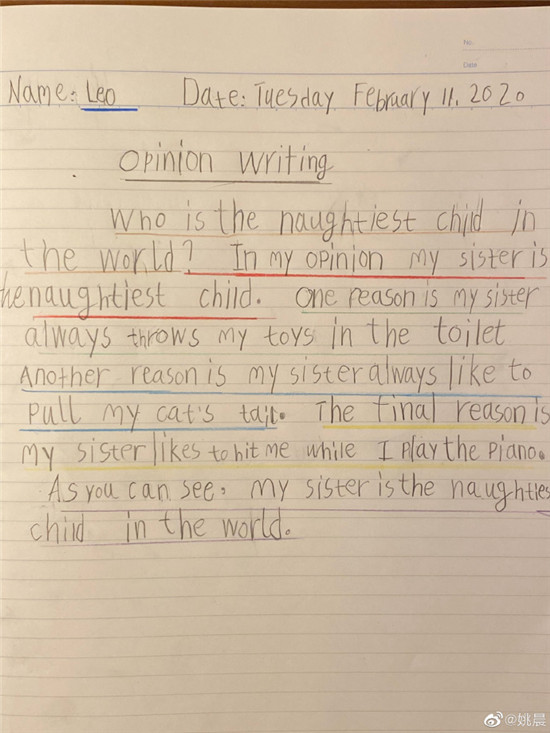 No.
Date
Name: Leo Date: Tuesday February 11. 2020
Opinion Writing
Who is the naughtiest child in
the world? In my opinion my sister is
he naughtiest child. One reason is my sister
always throws my toys in the toilet
Another reason is my sister always like to
pull my cat's tail. The final reason is
my sister likes to hit me while I play the piano.
As you can see, my sister is the naughties
child in the world.
@姚晨